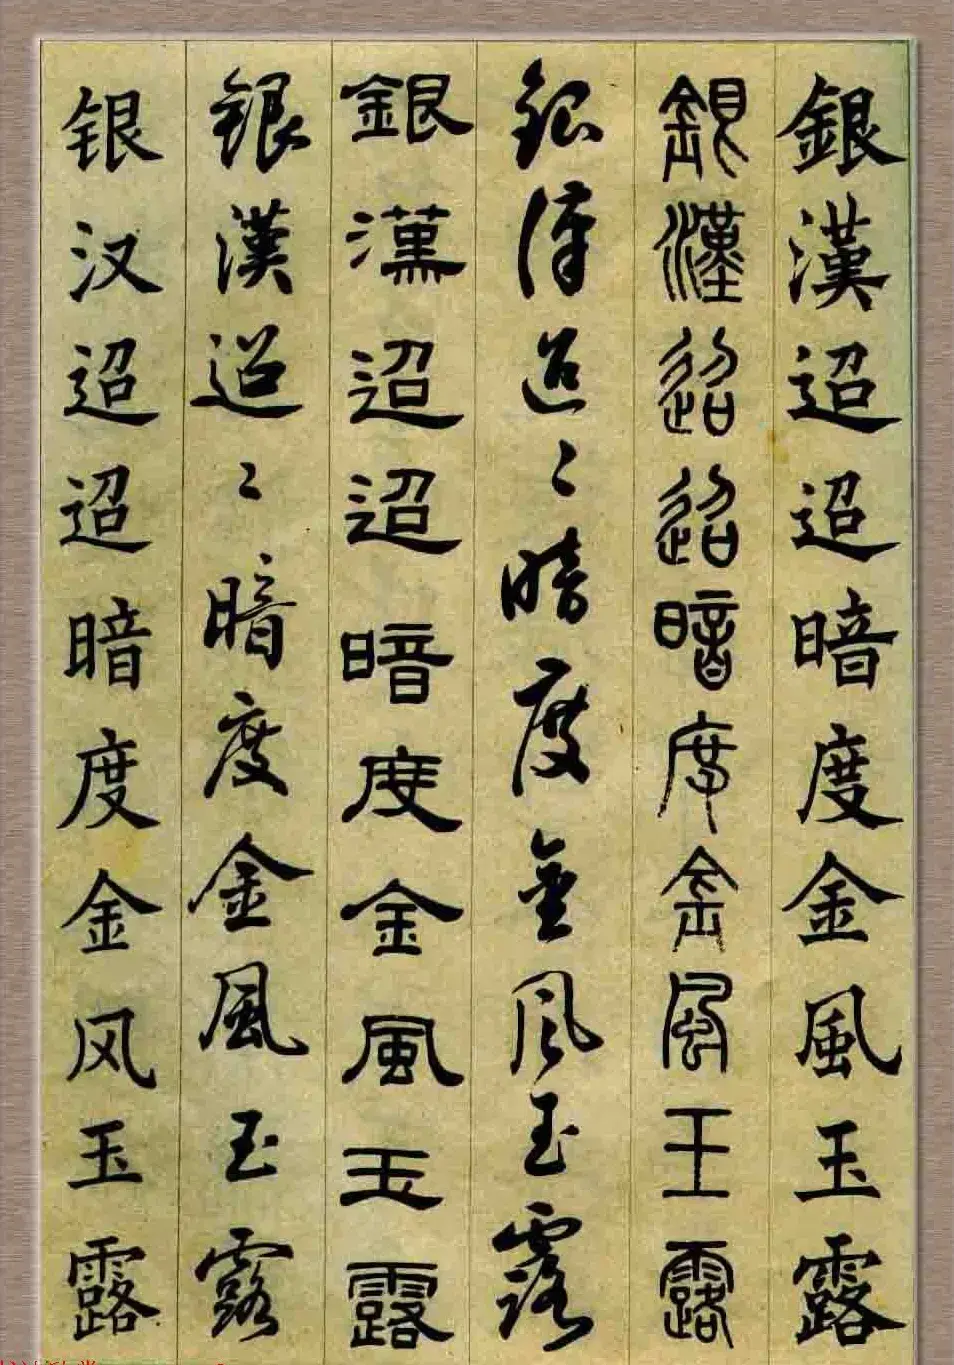 銀漢迢迢暗度金風玉露
銀漢迢迢暗度金風玉露
銀漢迢〻暗度金風玉露
銀漢迢迢暗度金風玉露
銀漢迢〻暗度金風玉露
银汉迢迢暗度金风玉露